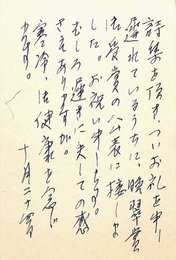 詩集を頂き、ついお礼を申し
遅れているうちに、晩翠賞
御受賞の公表に接しま
した。お祝い申します。
むしろ遅きに失しての感
さえありますが。
寒冷、御健康を念じ
ます。
十月二十日